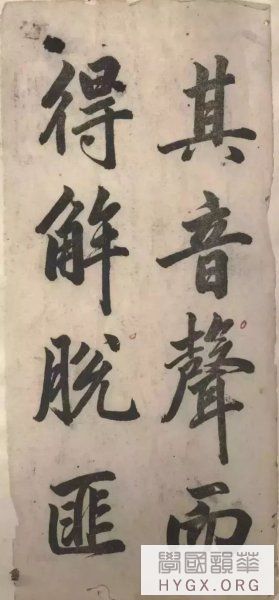 其音聲而
得解脱匪
學國韻華
HYGX.ORG